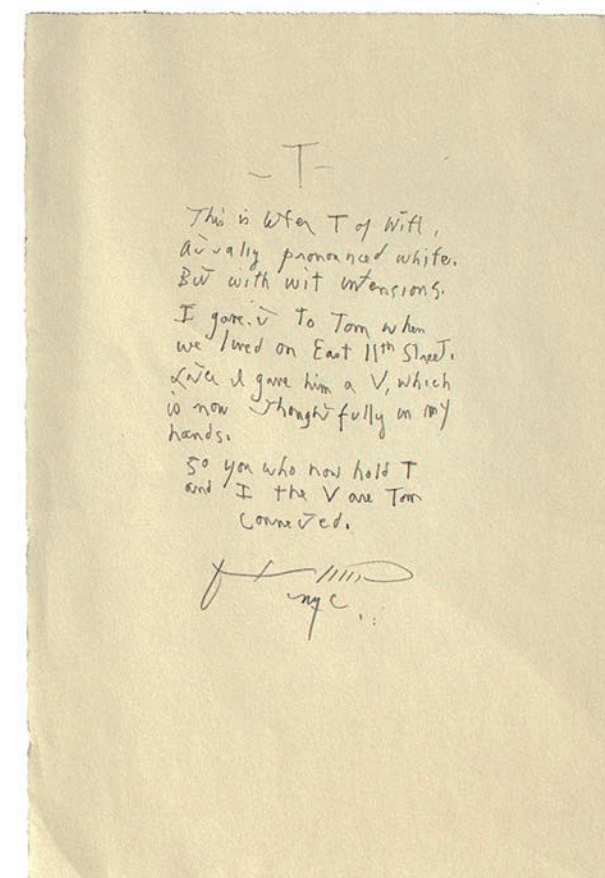 - T -
This is letter T of Witt,
Actually pronounced white.
But with wit intensions.
I gave it to Tom when
we lived on East 11th Street.
Later I gave him a V, which
is now thoughtfully in my
hands.
So you who now hold T
and I the V are Tom
connected.
nyc